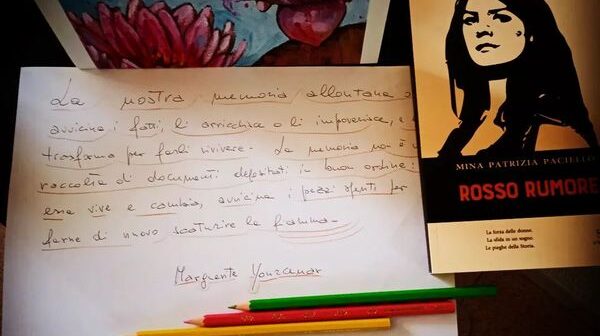 La nostra memoria allontana o
avvicina i fatti, li arricchisce o li impoverisce, e
trasforma per farli rivivere. La memoria non è
raccolta di documenti depositati in buon ordine:
essa vive e cambia, avvicina i pezzi spenti per
farne di nuovo scaturire la fiamma.
Marguerite Yourcenar
MINA PATRIZIA PACIELLO
ROSSO RUMORE
La forza delle donne.
La sfida in un sogno.
Le pieghe della Storia.